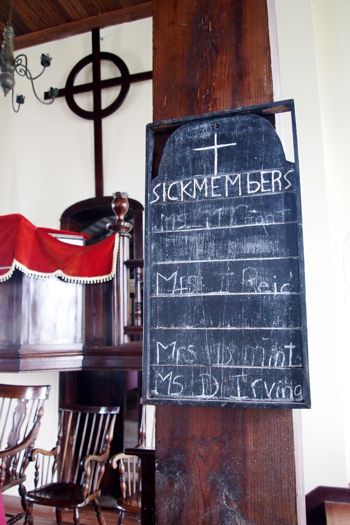 SICKMEMBERS
MS M
Mrs I Reid
Mrs D Mint
MS D Irving